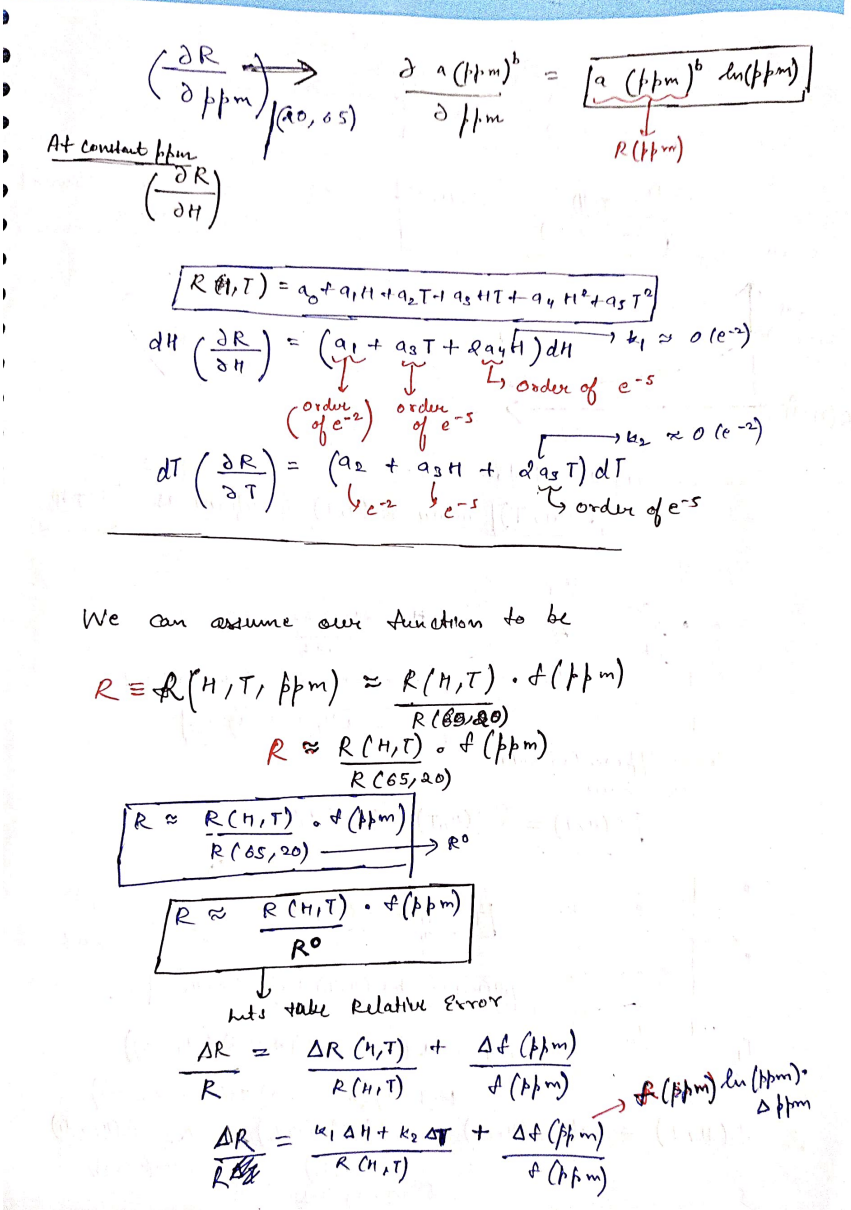 (∂R/∂ppm)|(20, 65) → ∂ a(ppm)^b / ∂ppm = a (ppm)^b ln(ppm)
R(ppm)
At constant ppm
(∂R/∂H)
R(H,T) = a₀ + a₁H + a₂T + a₃HT + a₄H² + a₅T²
dH (∂R/∂H) = (a₁ + a₃T + 2a₄H) dH → k₁ ≈ O(e⁻²)
(order of e⁻²) order of e⁻⁵ ↳ order of e⁻⁵
dT (∂R/∂T) = (a₂ + a₃H + 2a₅T) dT → k₂ ≈ O(e⁻²)
↳ e⁻² ↳ e⁻⁵ ↳ order of e⁻⁵
We can assume our function to be
R ≡ R(H, T, ppm) ≈ R(H,T) / R(65,20) · f(ppm)
R ≈ R(H,T) / R(65,20) · f(ppm)
R ≈ R(H,T) / R(65,20) · f(ppm) → R⁰
R ≈ R(H,T) / R⁰ · f(ppm)
Lets take Relative Error
ΔR / R = ΔR(H,T) / R(H,T) + Δf(ppm) / f(ppm)
→ f(ppm) ln(ppm)· Δppm
ΔR / R = k₁ΔH + k₂ΔT / R(H,T) + Δf(ppm) / f(ppm)